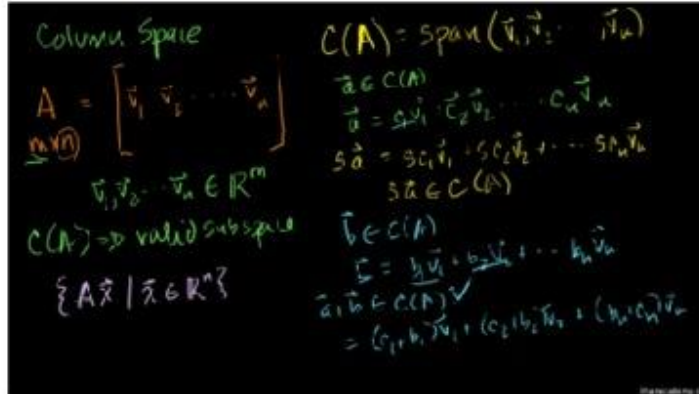 Column Space
A = [ v⃗₁ v⃗₂ ⋯ v⃗ₙ ]
m×n
v⃗₁, v⃗₂ ⋯ v⃗ₙ ∈ ℝᵐ
C(A) ⇒ valid subspace
{ A x⃗ | x⃗ ∈ ℝⁿ }
C(A) = span (v⃗₁, v⃗₂ ⋯ , v⃗ₙ)
a⃗ ∈ C(A)
a⃗ = c₁v⃗₁ + c₂v⃗₂ ⋯ cₙv⃗ₙ
sa⃗ = sc₁v⃗₁ + sc₂v⃗₂ + ⋯ scₙv⃗ₙ
sa⃗ ∈ C(A)
b⃗ ∈ C(A)
b⃗ = b₁v⃗₁ + b₂v⃗₂ + ⋯ bₙv⃗ₙ
a⃗ + b⃗ ∈ C(A) ✓
= (c₁+b₁)v⃗₁ + (c₂+b₂)v⃗₂ + (bₙ+cₙ)v⃗ₙ